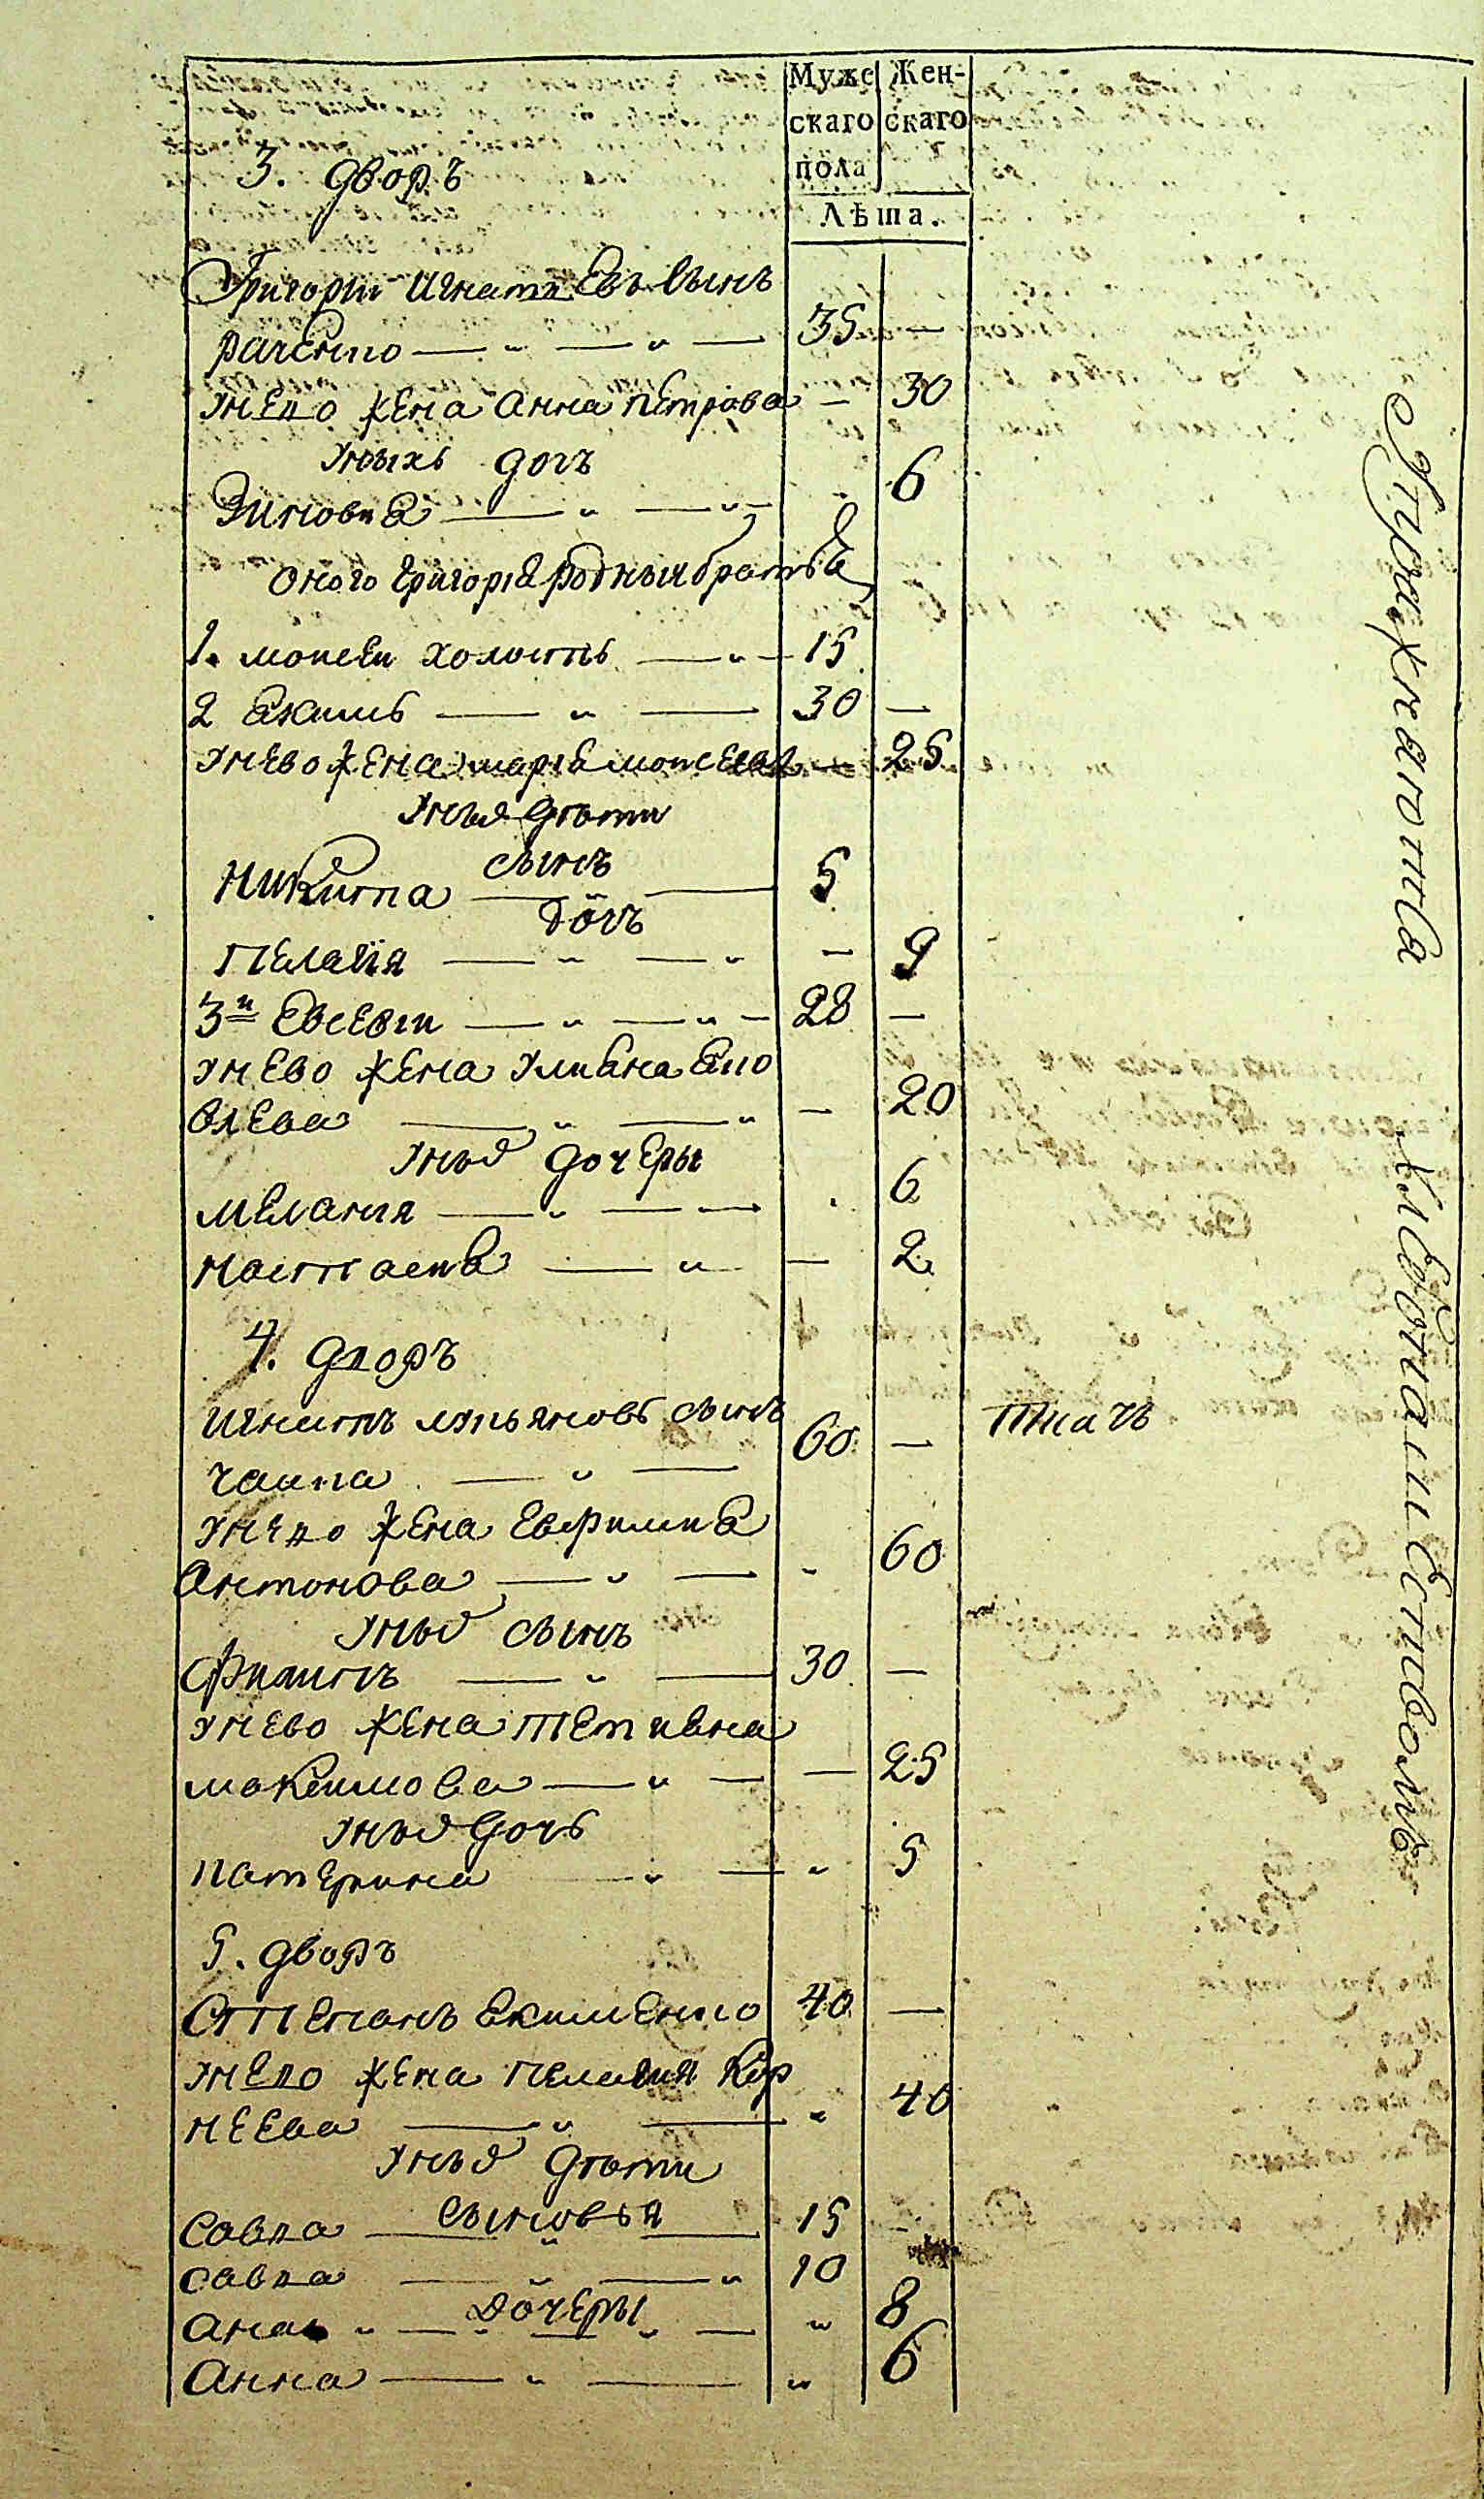 Муже Жен-
скаго скаго
пола
Лѣта.
3. дворъ
Григорїи Игнатиевъ сынъ
раченко — „ — „ — 35 —
унево жена анна петрова — 30
унихъ дочъ
Зиновиа — „ — „ 6
оного григорїя родныи братья
1. моисеи холостъ — „ — 15
2 Акимъ — „ — 30 —
унево жена марїя моисеева — 25
унихъ дѣти
сынъ
Никита — „ — 5
дочъ
Пелагїя — „ — „ — 9
3й Евсевїи — „ — „ — 28 —
унево жена улиана
влева — „ — „ — 20
унихъ дочеры
мелания — „ — 6
настасиа — „ — 2
4. дворъ
игнатъ лукьяновъ сынъ
чаика — „ — 60 — ткачъ
унево жена Евфимиа
антонова — „ — „ 60
унихъ сынъ
филипъ — „ — 30 —
унево жена тетиана
максимова — „ — — 25
унихъ дочъ
катерина „ — „ 5
5. дворъ
Степанъ Екименко 40 —
унево жена пелагия кор
неева — „ — „ 40
унихъ дѣти
сыновья
савка — „ — 15
савка — „ — „ 10
дочеры
анна „ — „ — „ — „ 8
Анна — „ — „ 6